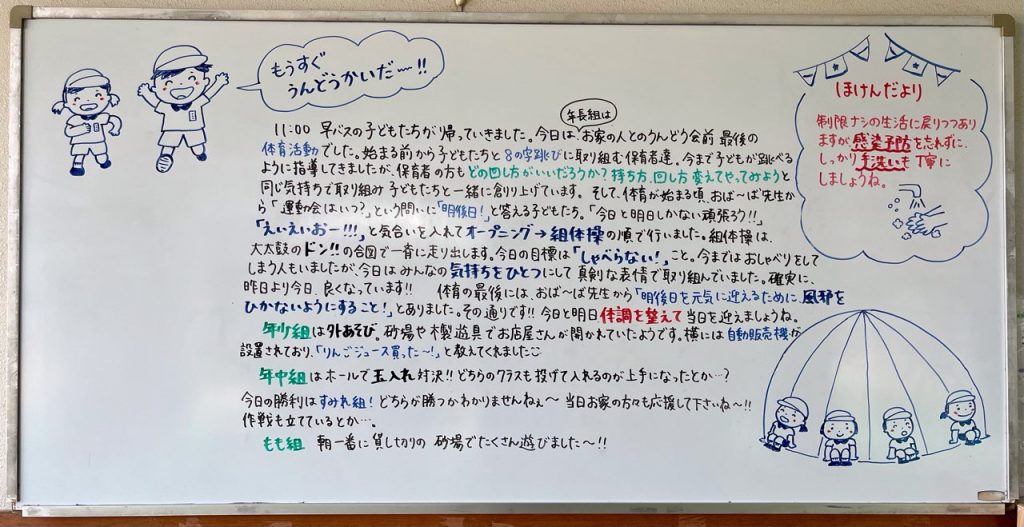 もうすぐ
うんどうかいだ〜!!
年長組は
11:00 早バスの子どもたちが帰っていきました。今日はお家の人とのうんどう会前 最後の
体育活動でした。始まる前から子どもたちと8の字跳びに取り組む保育者達。今まで子どもが跳べる
ように指導してきましたが、保育者の方もどの回し方がいいだろうか?持ち方、回し方変えてやってみようと
同じ気持ちで取り組み 子どもたちと一緒に創り上げています。そして、体育が始まる頃、おば〜ば先生か
ら「運動会はいつ?」という問いに「明後日!」と答える子どもたち。「今日と明日しかない頑張ろう!!」
「えいえいおー!!!」と気合いを入れてオープニング→組体操の順で行いました。組体操は、
大太鼓のドン!!の合図で一斉に走り出します。今日の目標は「しゃべらない!」こと。今まではおしゃべりをして
しまう人もいましたが、今日はみんなの気持ちをひとつにして真剣な表情で取り組んでいました。確実に、
昨日より今日、良くなっています!! 体育の最後には、おば〜ば先生から「明後日を元気に迎えるために、風邪を
ひかないようにすること!」とありました。その通りです!! 今日と明日体調を整えて当日を迎えましょうね。
年少組は外あそび。砂場や木製遊具でお店屋さんが開かれていたようです。横には自動販売機が
設置されており、「りんごジュース買った〜!」と教えてくれました
年中組はホールで玉入れ対決!!どちらのクラスも投げて入れるのが上手になったとか…?
今日の勝利はすみれ組!どちらが勝つかわかりませんねぇ〜 当日お家の方々も応援して下さいね〜!!
作戦も立てているとか…。
もも組 朝一番に貸し切りの砂場でたくさん遊びました〜!!
ほけんだより
制限ナシの生活に戻りつつあり
ますが、感染予防を忘れずに、
しっかり手洗いも丁寧に
しましょうね。